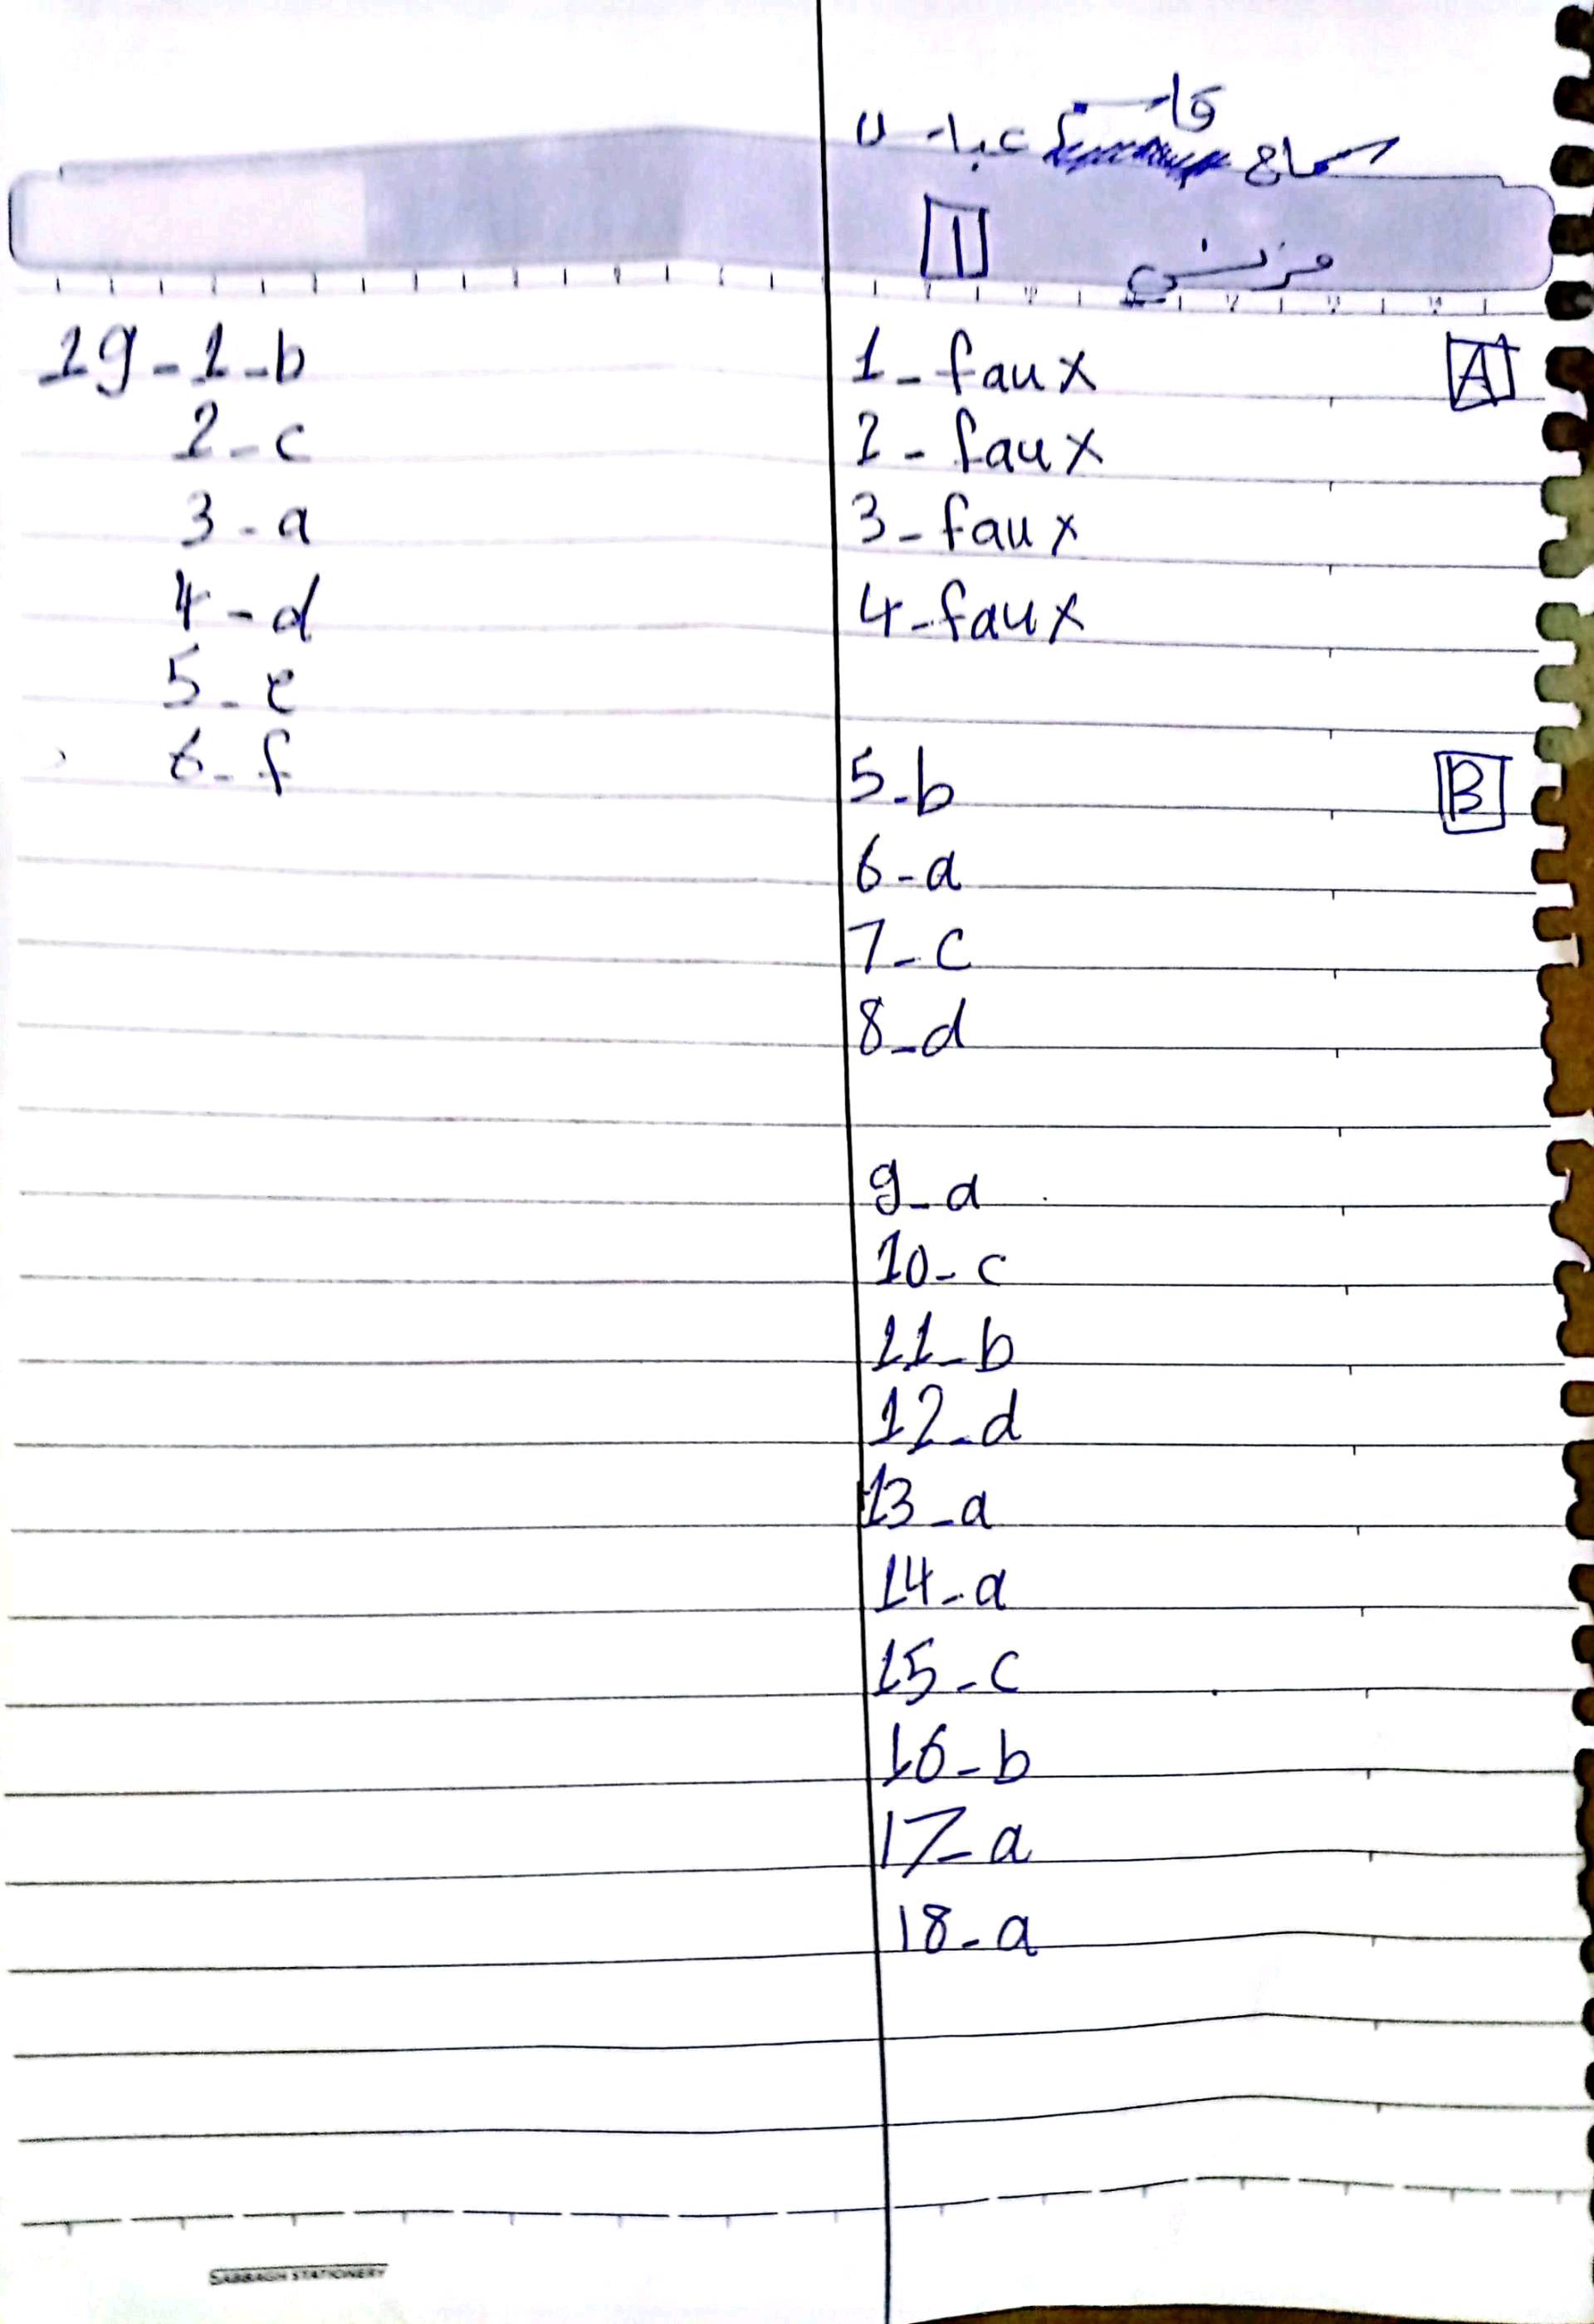 سماح عباس
فرنسي
1
A
1_ faux
2_ faux
3_ faux
4_ faux
B
5_b
6_a
7_c
8_d
9_a
10_c
11_b
12_d
13_a
14_a
15_c
16_b
17_a
18_a
19_1_b
2_c
3_a
4_d
5_e
6_f
SABBAGH STATIONERY